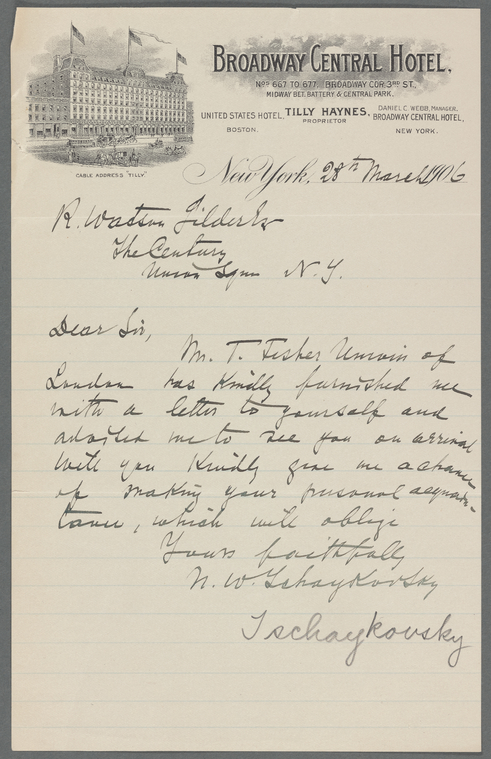 BROADWAY CENTRAL HOTEL.
NOS 667 TO 677. BROADWAY COR 3RD ST.,
MIDWAY BET. BATTERY & CENTRAL PARK.
UNITED STATES HOTEL,
BOSTON.
TILLY HAYNES,
PROPRIETOR
DANIEL C. WEBB, MANAGER.
BROADWAY CENTRAL HOTEL,
NEW YORK.
CABLE ADDRESS "TILLY"
New York, 28th March 1906
R. Watson Gilder Esq
The Century
Union Square N. Y.
Dear Sir,
Mr. T. Fisher Unwin of
London has kindly furnished me
with a letter to yourself and
advised me to see you on arrival
Will you kindly give me a chance
of making your personal acquain-
tance, which will oblige
Yours faithfully
N. W. Tschaykovsky
Tschaykovsky